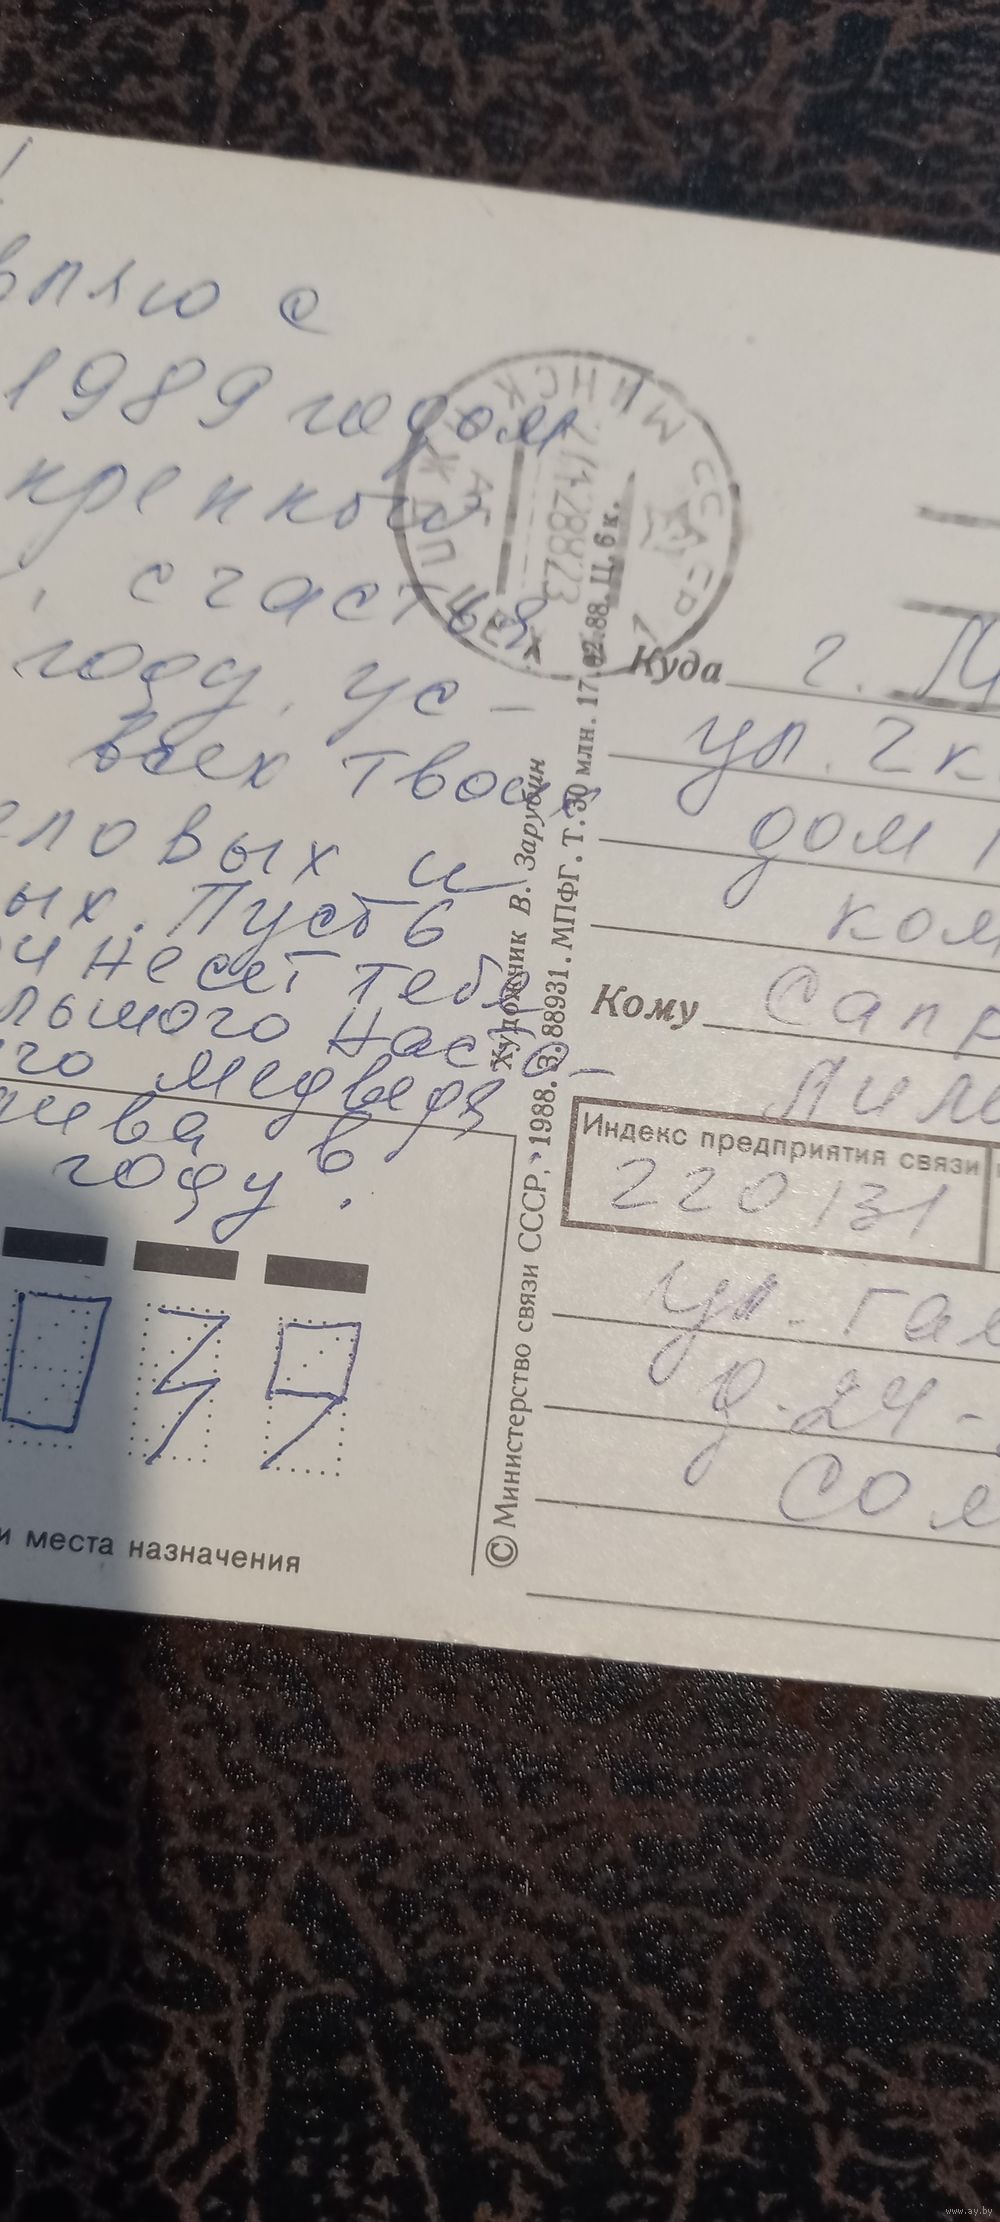 вляю с
1989 годом
, счастья
году, ус-
всех твоих
еловых и
ых. Пусть
несет тебе
льшого нас
го медведя
в
году.
и места назначения
МИНСК
© Министерство связи СССР, 1988. З. 88931. МПФГ. Т. 30 млн. 17.02.88. Ц. 6 к.
Художник В. Зарубин
Куда г. М
ул. 2 к
дом
ком
Кому Сапр
Индекс предприятия связи
220131
ул. Га
д. 24 -
www.ay.by